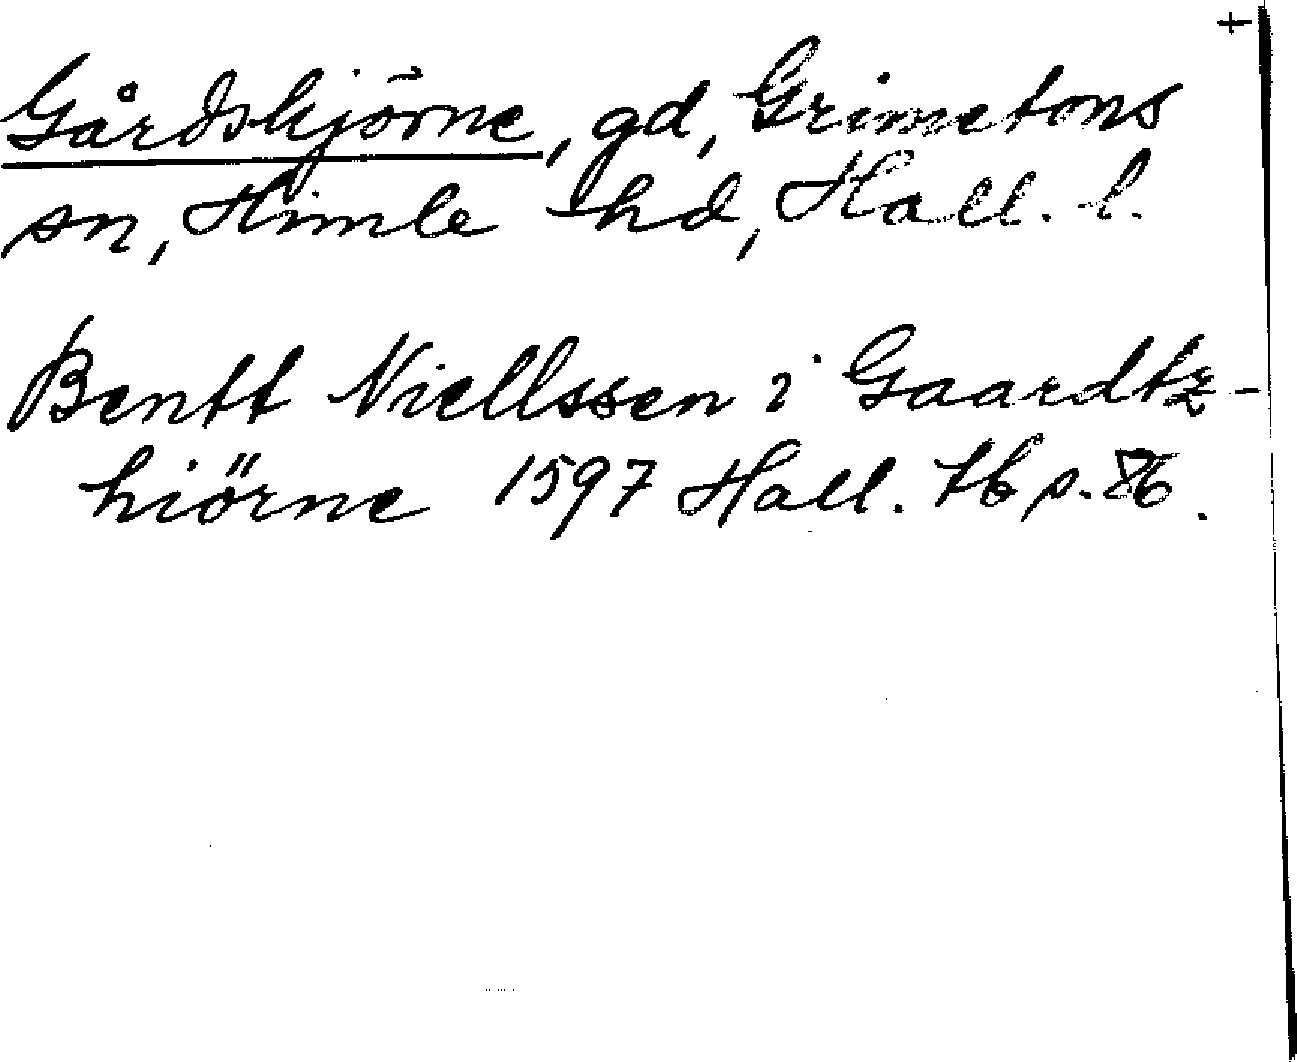 +
Gårdshjörne, gd, Grimetons
sn, Himle hd, Hall. l.
Bentt Niellssen i Gaardtz-
hiörne 1597 Hall. tb p. 86.